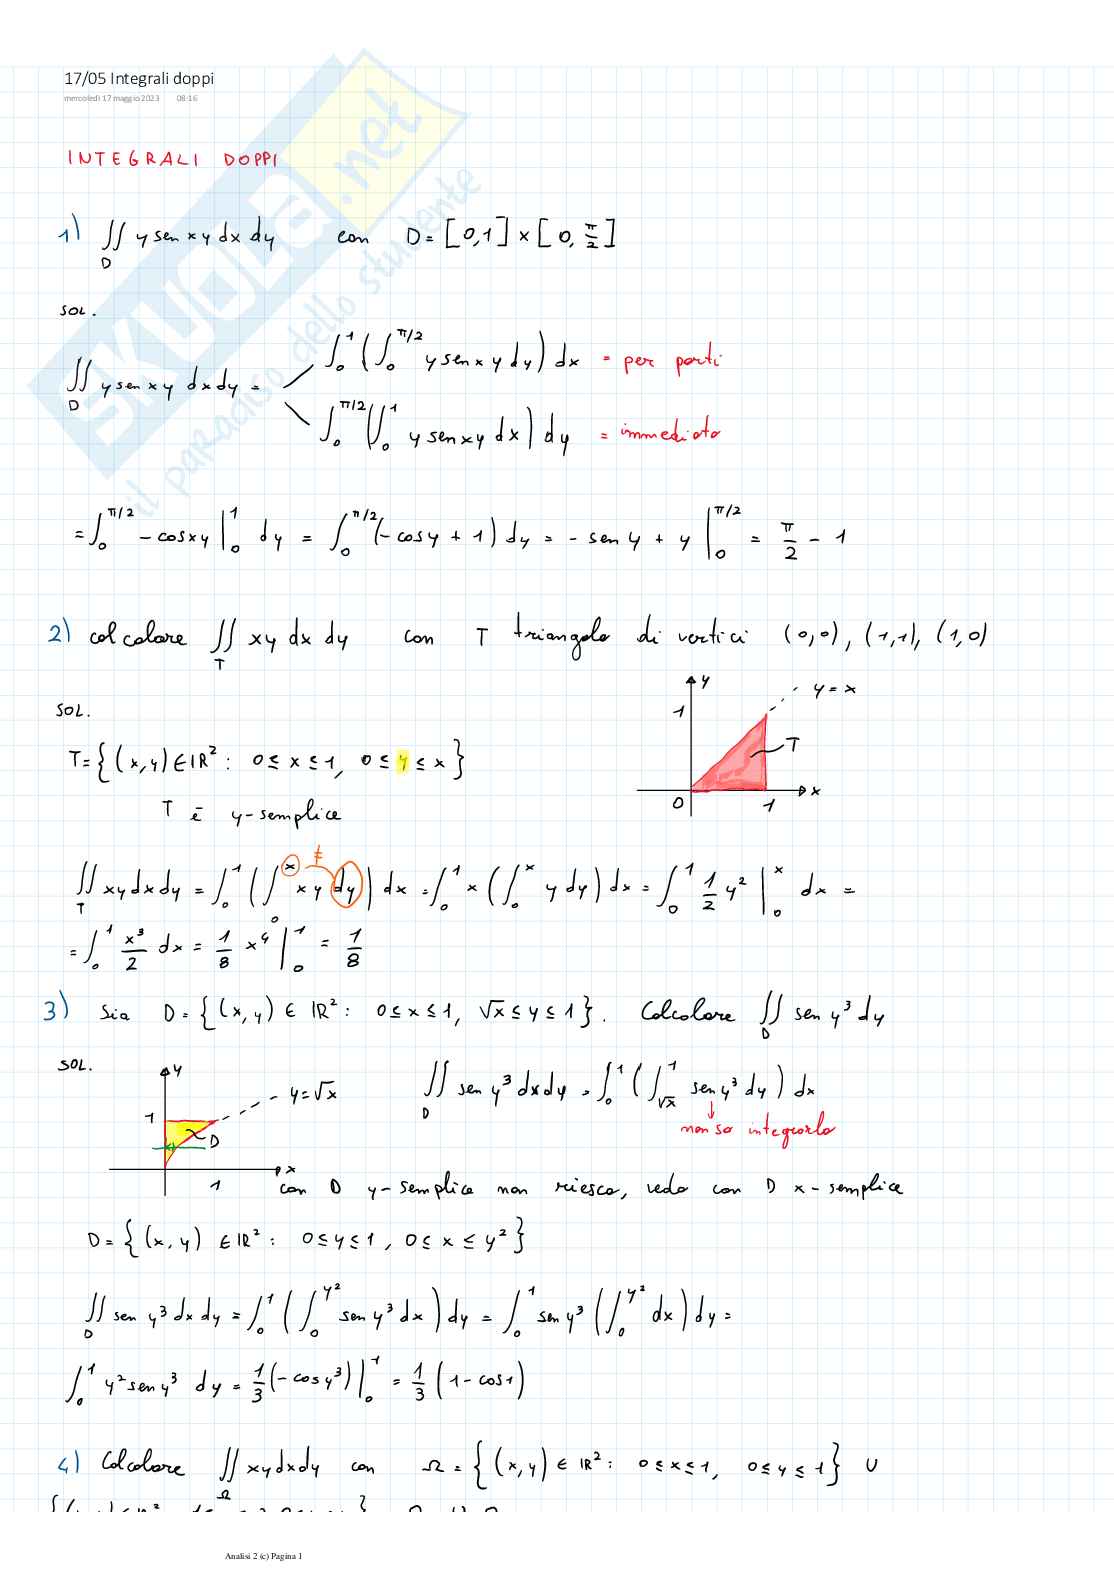 17/05 Integrali doppi
mercoledì 17 maggio 2023 08:16
INTEGRALI DOPPI
1) ∬_D y sen xy dx dy con D = [0,1] × [0, π/2]
SOL.
∬_D y sen xy dx dy =
∫_0^1 (∫_0^{π/2} y sen xy dy) dx = per parti
∫_0^{π/2} (∫_0^1 y sen xy dx) dy = immediato
= ∫_0^{π/2} - cos xy |_0^1 dy = ∫_0^{π/2} (- cos y + 1) dy = - sen y + y |_0^{π/2} = π/2 - 1
2) calcolare ∬_T xy dx dy con T triangolo di vertici (0,0), (1,1), (1,0)
y
y = x
1
T
0 1 x
SOL.
T = {(x,y) ∈ ℝ² : 0 ≤ x ≤ 1, 0 ≤ y ≤ x}
T è y-semplice
≠
∬_T xy dx dy = ∫_0^1 (∫_0^x xy dy) dx = ∫_0^1 x (∫_0^x y dy) dx = ∫_0^1 1/2 y² |_0^x dx =
= ∫_0^1 x³/2 dx = 1/8 x⁴ |_0^1 = 1/8
3) Sia D = {(x,y) ∈ ℝ² : 0 ≤ x ≤ 1, √x ≤ y ≤ 1}. Calcolare ∬_D sen y³ dy
SOL.
y
y = √x
1
D
x
1
∬_D sen y³ dx dy = ∫_0^1 (∫_{√x}^1 sen y³ dy) dx
↓
non so integrarlo
con D y-semplice non riesco, vedo con D x-semplice
D = {(x,y) ∈ ℝ² : 0 ≤ y ≤ 1, 0 ≤ x ≤ y²}
∬_D sen y³ dx dy = ∫_0^1 (∫_0^{y²} sen y³ dx) dy = ∫_0^1 sen y³ (∫_0^{y²} dx) dy =
∫_0^1 y² sen y³ dy = 1/3 (- cos y³) |_0^1 = 1/3 (1 - cos 1)
4) Calcolare ∬_Ω xy dx dy con Ω = {(x,y) ∈ ℝ² : 0 ≤ x ≤ 1, 0 ≤ y ≤ 1} ∪
Analisi 2 (c) Pagina 1
SKUOLA.net
il paradiso dello studente